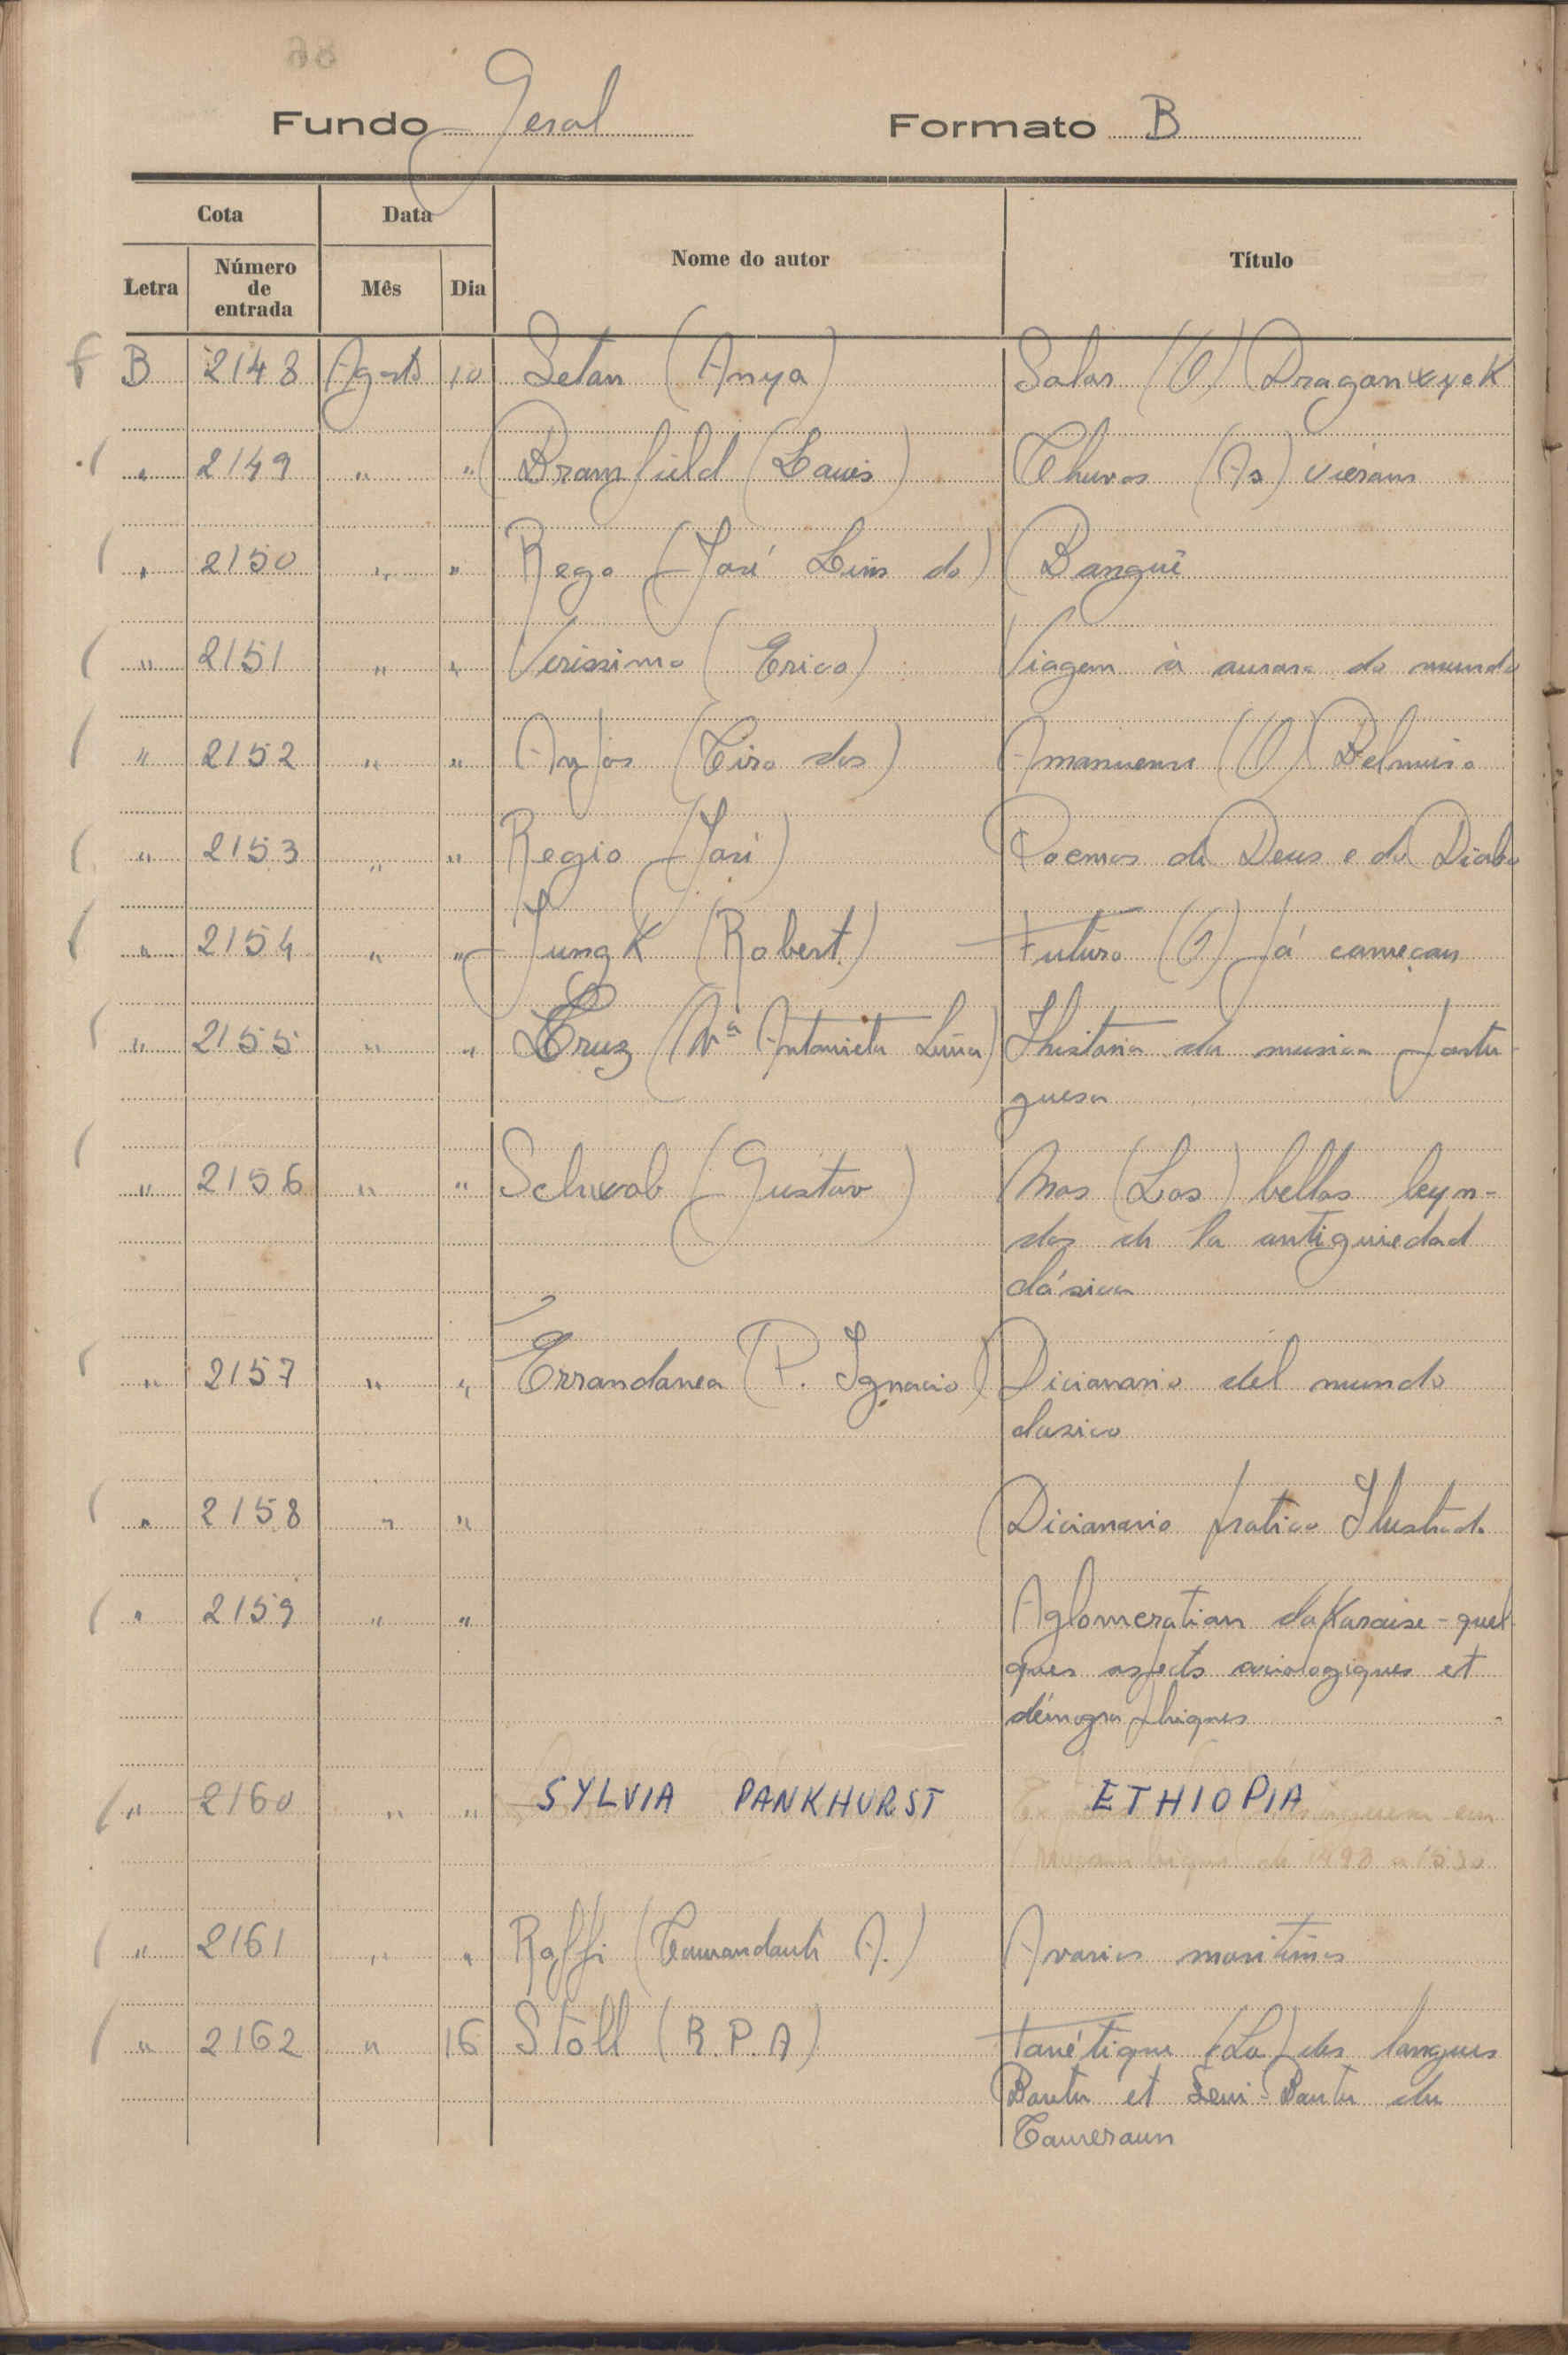 Fundo Geral Formato B
Cota Data Nome do autor Título
Letra Número de entrada Mês Dia
B 2148 Agosto 10 Setan (Anya) Solar (O) Dragonwyck
" 2149 " " Bramfield (Lauis) Chuvas (As) vieram
" 2150 " " Rego (José Lins do) Banguê
" 2151 " " Verissimo (Erico) Viagem à aurora do mundo
" 2152 " " Anjos (Ciro dos) Amanuense (O) Belmiro
" 2153 " " Regio (José) Poemas de Deus e do Diabo
" 2154 " " Jungk (Robert) Futuro (O) já começou
" 2155 " " Cruz (Mª Antonieta Lima) Historia da musica portu-
guesa
" 2156 " " Schwab (Gustav) Mas (Las) bellas leyn-
das de la antiguiedad
clásica
" 2157 " " Errandonea (P. Ignacio) Dicionario del mundo
clasico
" 2158 " " Dicionario pratico Ilustrado
" 2159 " " Aglomeration dakaraise - quel-
ques aspects sociologiques et
démographiques
" 2160 " " SYLVIA PANKHURST ETHIOPIA
de 1498 a 1530
" 2161 " " Raffi (Comandante A.) Avarias maritimas
" 2162 " 16 Stoll (R.P.A) Tonétique (La) des langues
Bantu et Semi-Bantu du
Cameroun